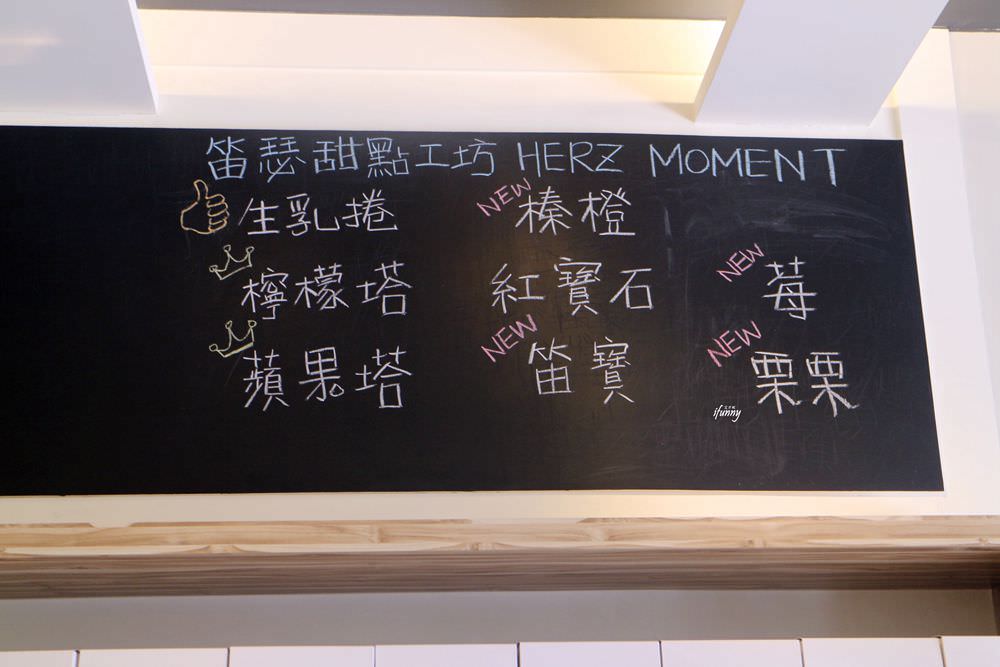 笛瑟甜點工坊 HERZ MOMENT
生乳捲
檸檬塔
蘋果塔
NEW
榛橙
紅寶石
NEW
笛寶
NEW
莓
NEW
栗栗
ifunny